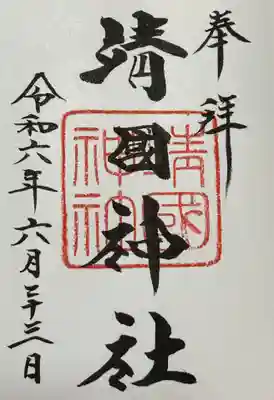 奉拝
靖国神社
靖國神社
令和六年六月二十三日